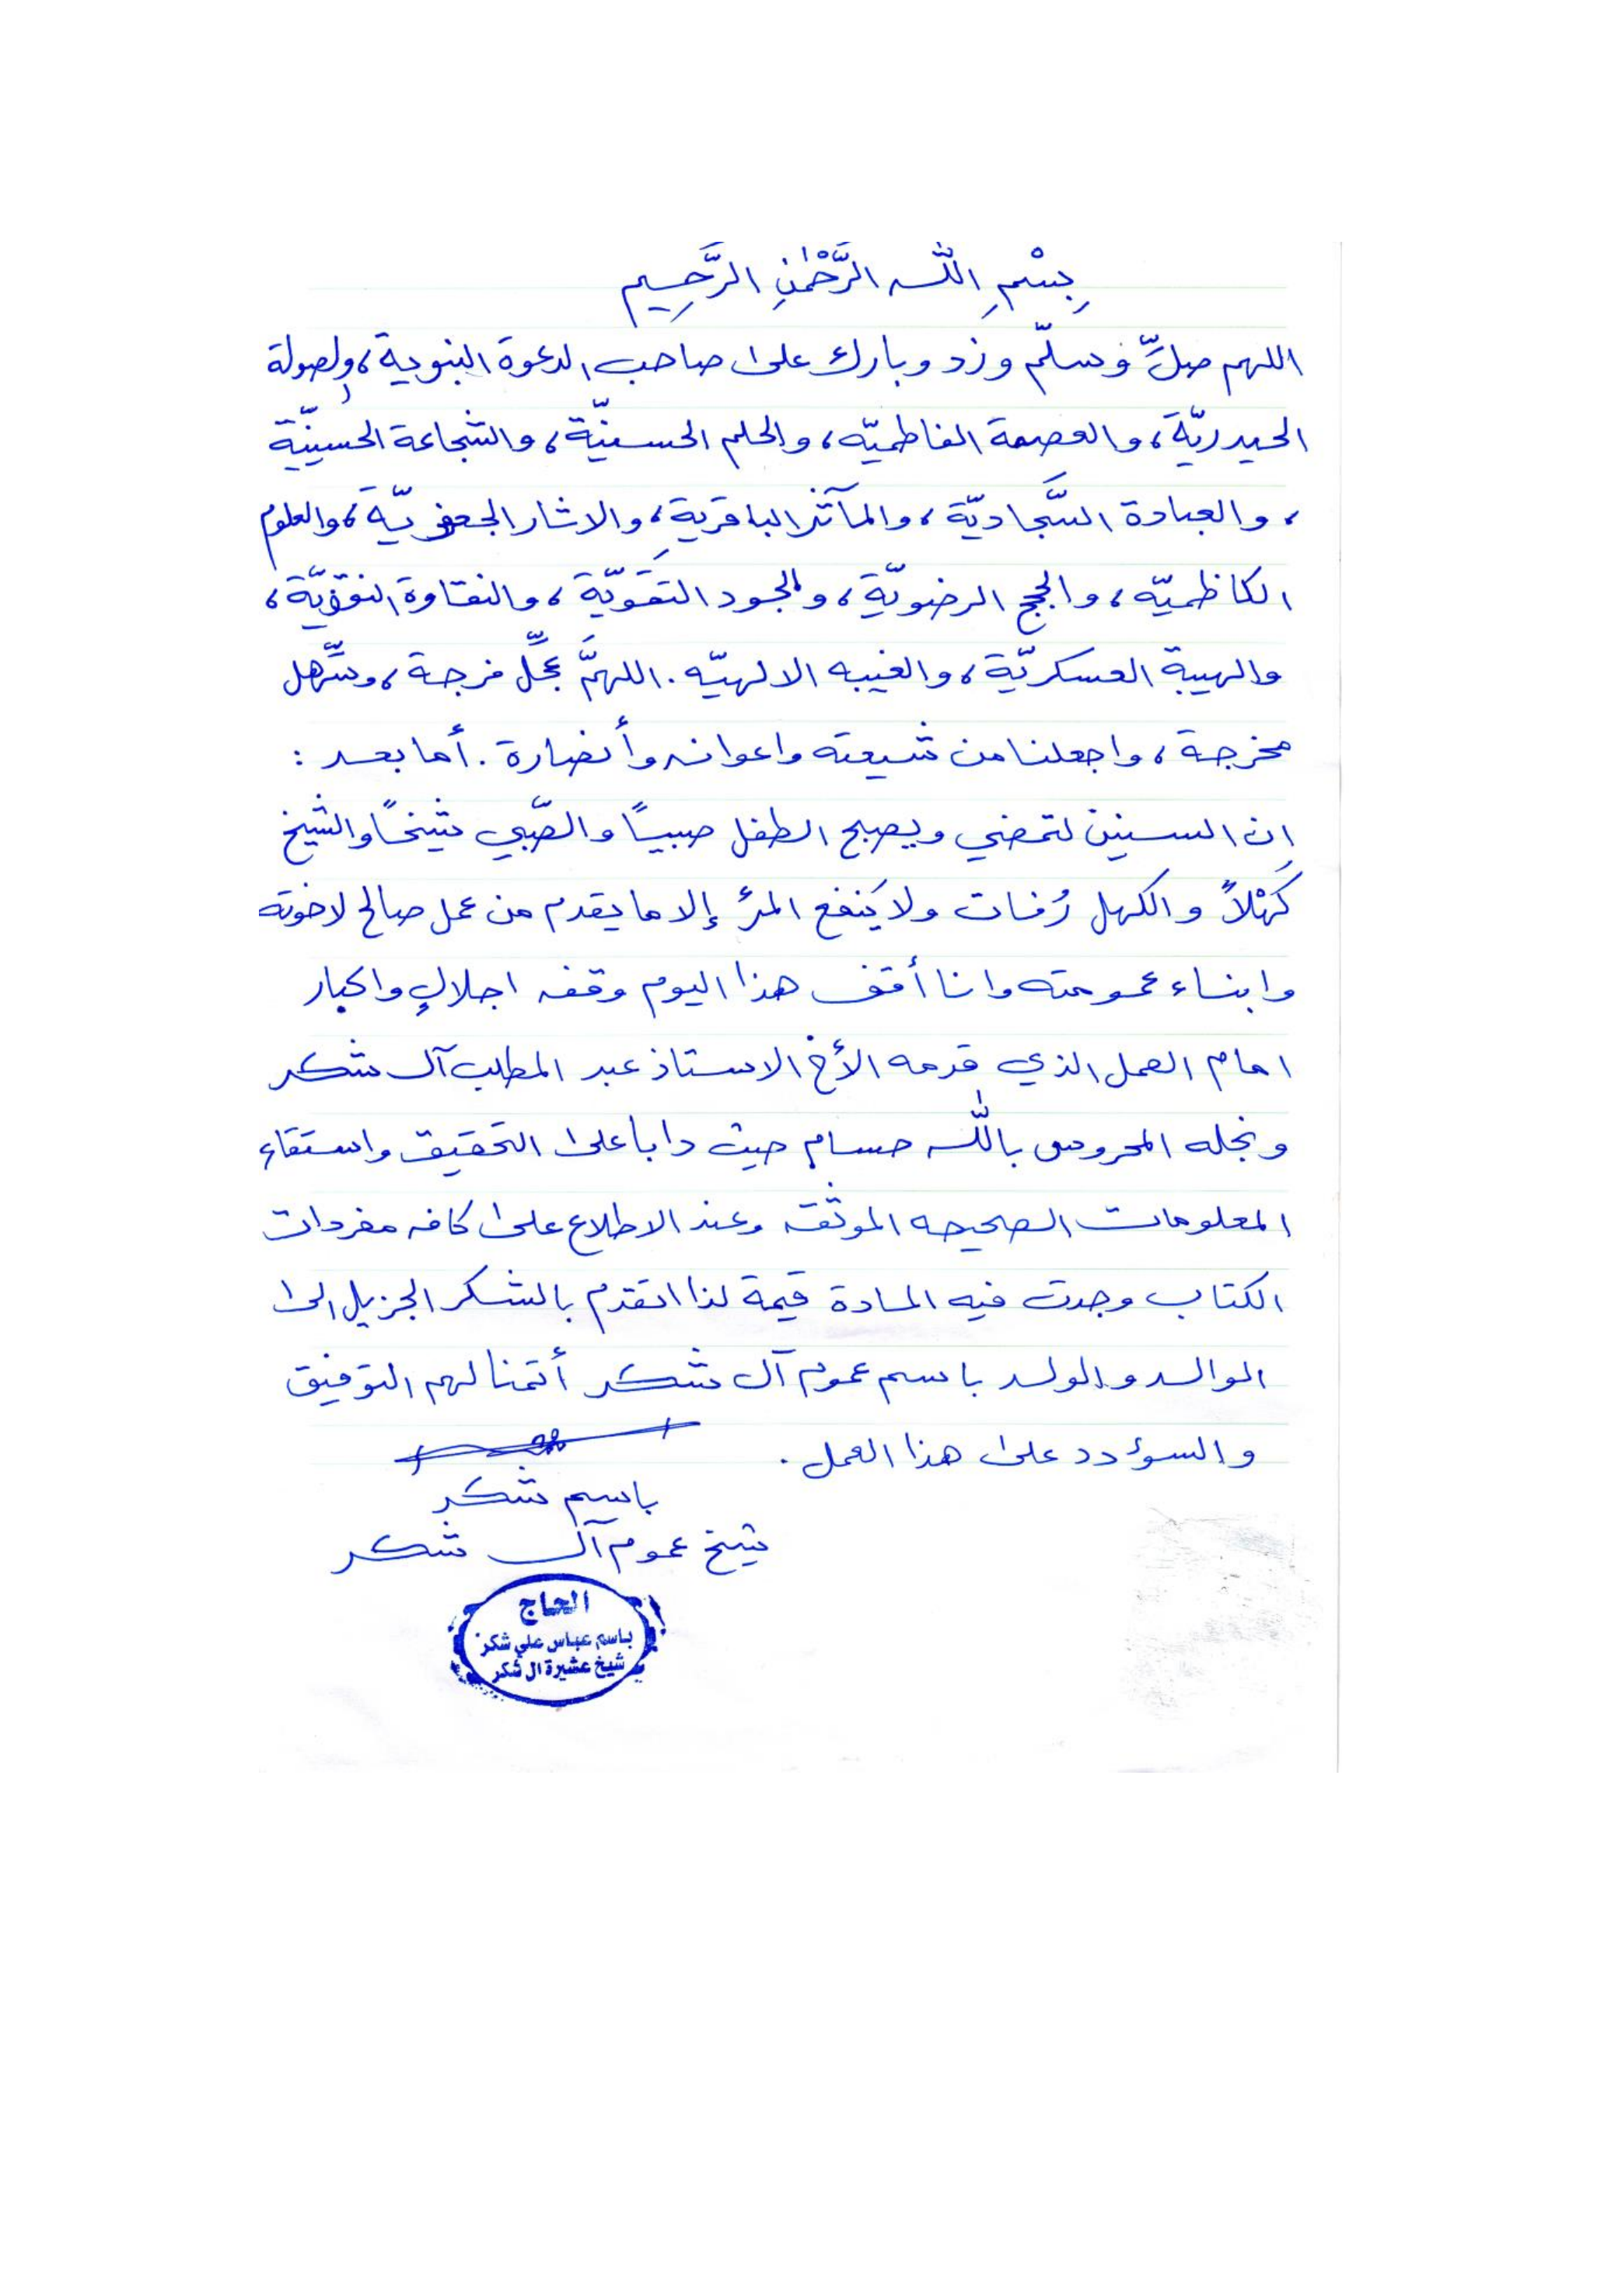 بِسْمِ اللّٰه الرَّحْمٰنِ الرَّحِيمِ
اللهم صلِّ وسلّم وزد وبارك على صاحب الدعوة النبوية، والصولة
الحيدريّة، والعصمة الفاطميّه، والحلم الحسنيّة، والشجاعة الحسينيّة
، والعبادة السَّجاديّة، والمآثر الباقرية، والاثار الجعفريّة، والعلوم
الكاظميّه، والحجج الرضويّة، والجود التقَويّة، والنقاوة النقويّة،
والهيبة العسكريّة، والغيبه الالهيّه. اللهمَّ عجِّل فرجة، وسَّهل
مخرجة، واجعلنا من شيعته واعوانه وأنصارة. أما بعد:
ان السنين لتمضي ويصبح الطفل صبياً والصّبي شيخاً والشيخ
كَهْلاً والكهل رُفات ولا يَنفع المرُ إلا ما يقدم من عمل صالح لاخوته
وابناء عمومته وانا أقف هذا اليوم وقفه اجلالٍ واكبار
امام العمل الذي قدمه الأخ الاستاذ عبد المطلب آل شكر
ونجله المحروس باللّٰه حسام حيث دابا على التحقيق واستقاء
المعلومات الصحيحه الموثّقه وعند الاطلاع على كافه مفردات
الكتاب وجدت فيه المادة قيمة لذا اتقدم بالشكر الجزيل الى
الوالد والولد باسم عموم آل شكر أتمنا لهم التوفيق
والسوؤدد على هذا العمل.
باسم شكر
شيخ عموم آل شكر
الحاج
باسم عباس علي شكر
شيخ عشيرة ال شكر